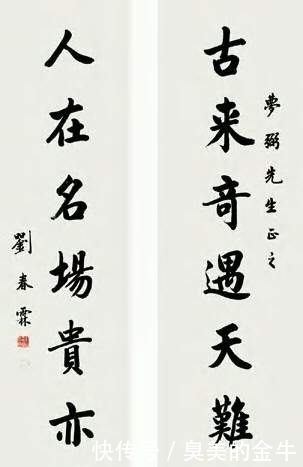 古来奇遇天難
夢弼先生正之
人在名場貴亦
劉春霖
快传号/臭美的金牛